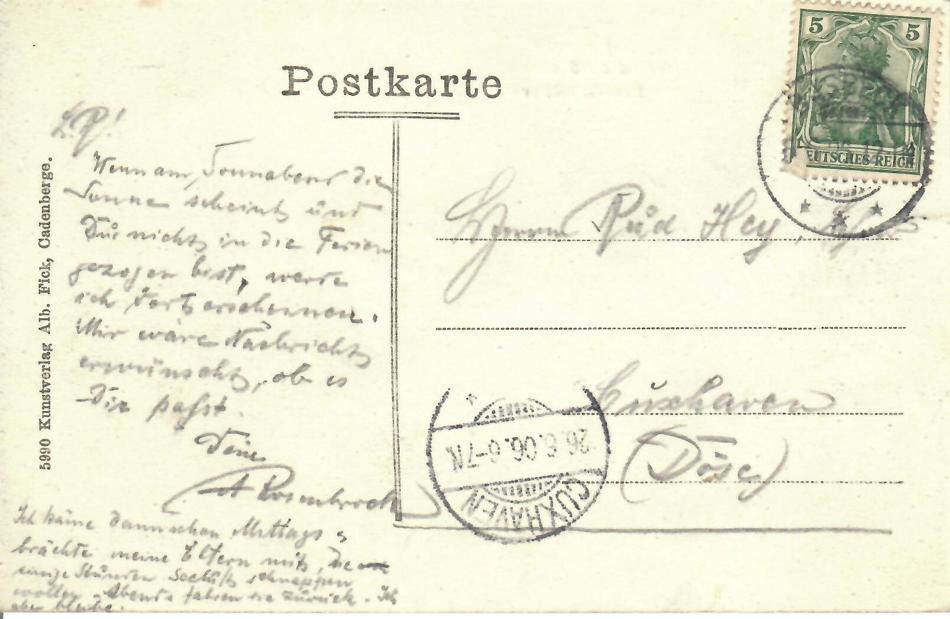 Postkarte
5
5
DEUTSCHES REICH
5990 Kunstverlag Alb. Fick, Cadenberge.
L. R!
Wenn am Sonnabend die
Sonne scheint und
Du nicht in die Ferien
gezogen bist, werde
ich dort erscheinen.
Mir wäre Nachricht
erwünscht, ob es
Dir paßt.
Dein
A Rosenbrock
Ich käme dann schon Mittags,
brächte meine Eltern mit, die
einige Stunden Seeluft schnappen
wollen. Abends fahren sie zurück. Ich
aber bleibe.
Herrn Rud. Hey,
Cuxhaven
(Döse)
26.6.06.6-7N.
CUXHAVEN